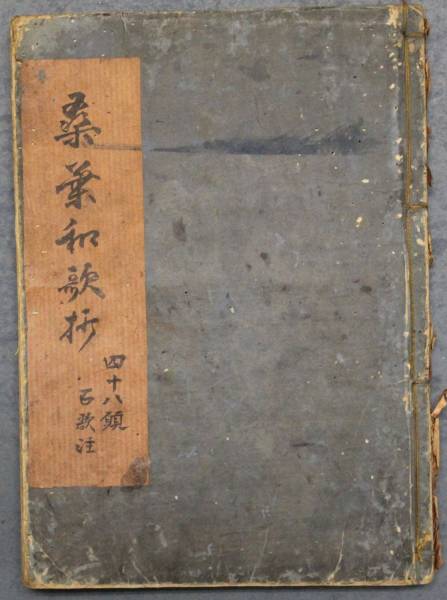 桑葉和歌抄
四十八願
歌注